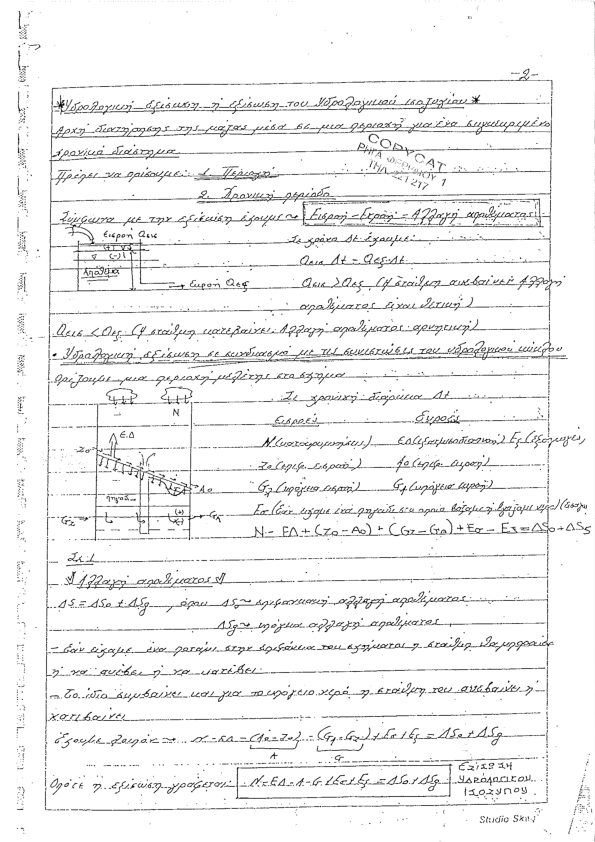 -2-
*Υδρολογική εξίσωση ή εξίσωση του Υδρολογικού ισοζυγίου*
Αρχή διατήρησης της μάζας μέσα σε μια περιοχή για ένα συγκεκριμένο
χρονικό διάστημα
COPYCAT
ΡΗΓΑ ΦΕΡΡΑΙΟΥ 1
ΤΗΛ. 221217
Πρέπει να ορίσουμε: 1. Περιοχή
2. Χρονική περίοδο
Σύμφωνα με την εξίσωση έχουμε ~ Εισροή - Εκροή = Αλλαγή αποθέματος
Εισροή Qεισ
Απόθεμα
Εκροή Qεξ
Σε χρόνο Δt έχουμε:
Qεισ Δt - Qεξ Δt
Qεισ > Qεξ (Η στάθμη ανεβαίνει. Αλλαγή
αποθέματος είναι θετική)
Qεισ < Qεξ (Η στάθμη κατεβαίνει. Αλλαγή αποθέματος αρνητική)
• Υδρολογική εξίσωση σε συνδυασμό με τις συνιστώσες του υδρολογικού κύκλου
Ορίζουμε μια περιοχή μελέτης στο σχήμα
Σε χρονική διάρκεια Δt
N
ΕΔ
Io
Ao
Gz
Gλ
Εισροές
N (κατακρημνίσεις) ΕΔ (εξατμισοδιαπνοή)
Io (επιφ. εισροή) Ao (επιφ. εκροή)
Gz (υπόγεια εισροή) Gλ (υπόγεια εκροή)
N - ΕΔ + (Io - Ao) + (Gz - Gλ) + Eσ - Eξ = ΔSo + ΔSg
Σχ. 1
Αλλαγή αποθέματος
ΔS = ΔSo + ΔSg, όπου ΔSo ~ επιφανειακή αλλαγή αποθέματος
ΔSg ~ υπόγεια αλλαγή αποθέματος.
- Εάν είχαμε ένα ποτάμι στην επιφάνεια του σχήματος η στάθμη θα μπορούσε
ή να ανέβει ή να κατέβει.
- Το ίδιο συμβαίνει και για το υπόγειο νερό η στάθμη του ανεβαίνει ή
κατεβαίνει
Έχουμε λοιπόν → N - ΕΔ - (Ao - Io) - (Gλ - Gz) + Eσ + Eξ = ΔSo + ΔSg
A G
Οπότε η εξίσωση γράφεται: N - ΕΔ - A - G + Eσ + Eξ = ΔSo + ΔSg
ΕΞΙΣΩΣΗ
ΥΔΡΟΛΟΓΙΚΟΥ
ΙΣΟΖΥΓΙΟΥ
Studio Skin